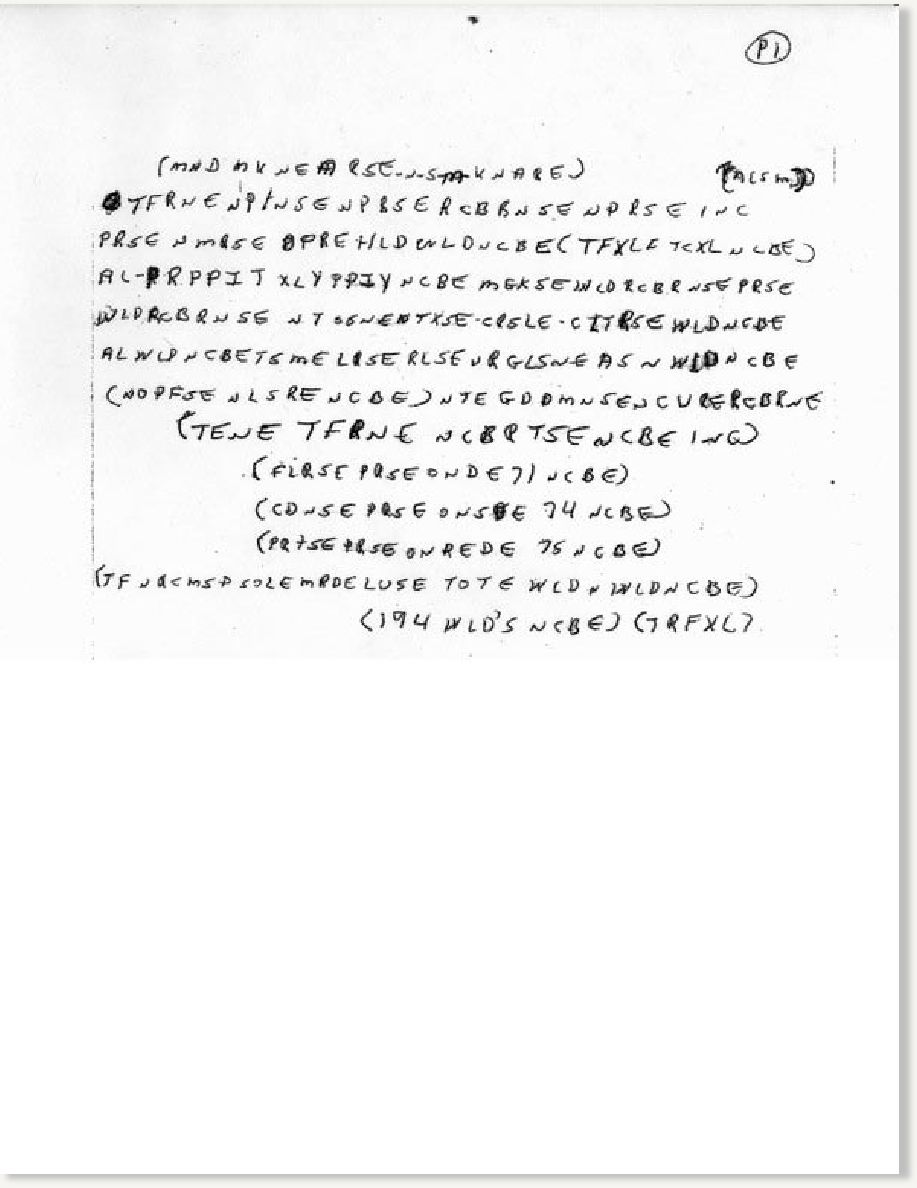 P1
(MND MKNEARSE-N-S-M-KNARE) (ALSM)
TFRNENPINSENPBSERCBBRNSENPRSEINC
PRSENMRSEOPREHLDWLDNCBE(TFXLFTCXLNCBE)
AL-PRPPIT XLYPPIYNCBE MGKSEWLDRCBRNSEPRSE
WLDRCBRNSE NTOSNENTXSE-CRSLE-CITRSEWLDNCBE
ALWLPNCBETSMELRSERLSEURGLSNEASNWLDNCBE
(NOPFSENLSRENCBE)NTEGDDMNSENCURERCBRNE
(TENE TFRNE NCBRTSENCBE ING)
(FLRSE PRSEONDE71NCBE)
(CDNSEPRSEONSDE 74NCBE)
(PRTSEPRSEONREDE 75NCBE)
(TFNRCMSPSOLEMRDELUSE TOTE WLDNWLDNCBE)
(194 WLD'S NCBE) (TRFXL)